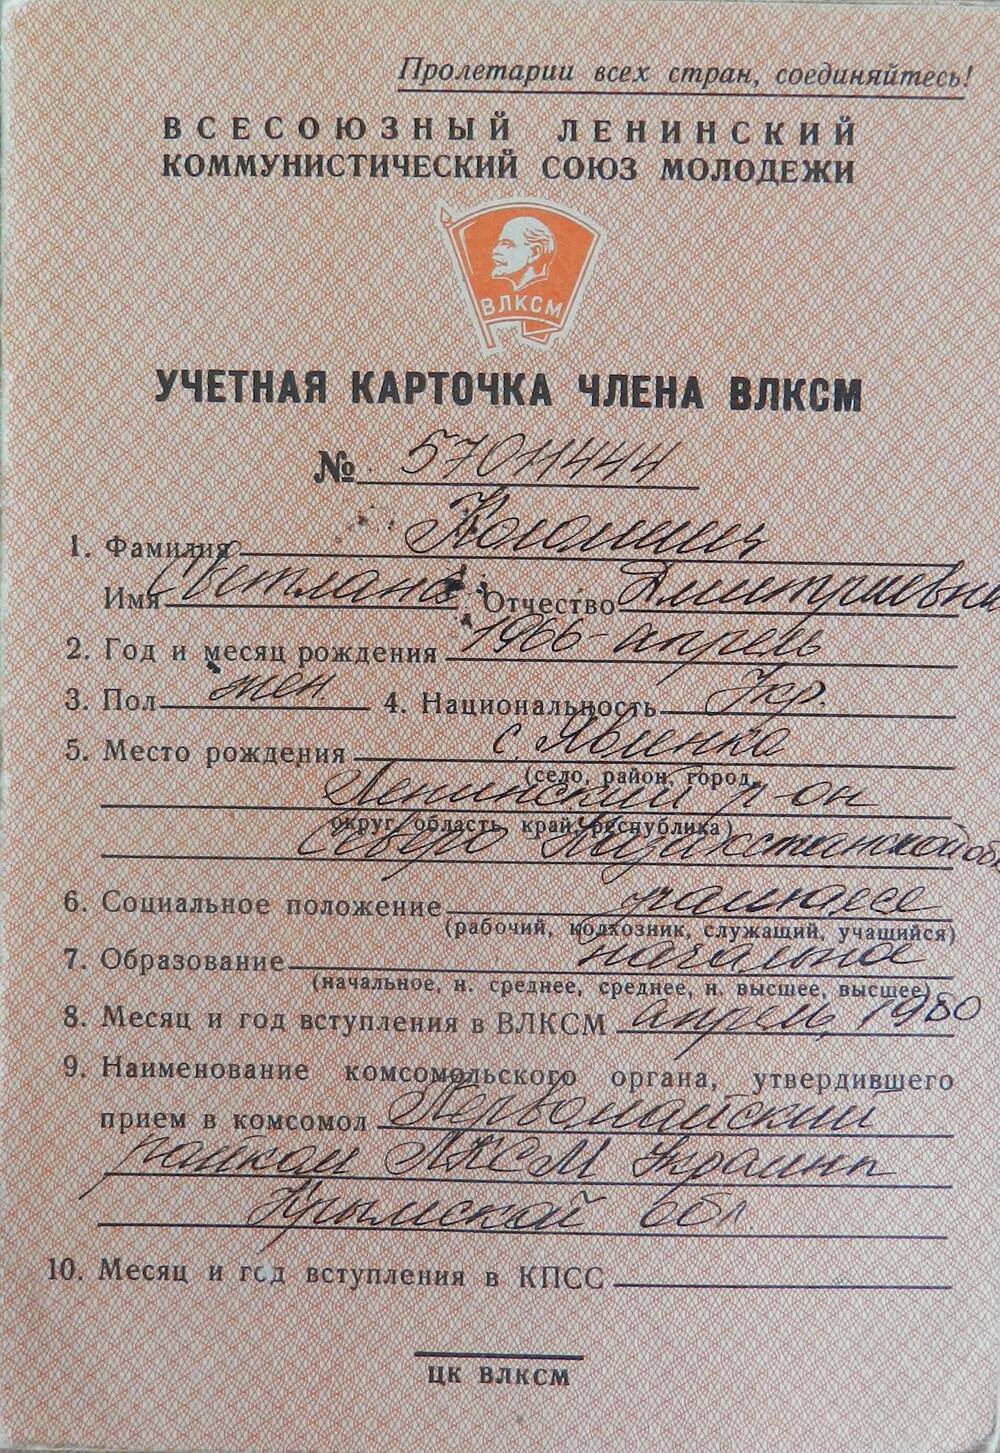 Пролетарии всех стран, соединяйтесь!
ВСЕСОЮЗНЫЙ ЛЕНИНСКИЙ
КОММУНИСТИЧЕСКИЙ СОЮЗ МОЛОДЕЖИ
ВЛКСМ
УЧЕТНАЯ КАРТОЧКА ЧЛЕНА ВЛКСМ
№ 57011444
1. Фамилия Коломиец
Имя Светлана Отчество Дмитриевна
2. Год и месяц рождения 1966 - апрель
3. Пол жен 4. Национальность Укр.
5. Место рождения с. Явленка
(село, район, город,
Ленинский р-он
округ, область, край, республика)
Северо Казахстанской обл
6. Социальное положение учащаяся
(рабочий, колхозник, служащий, учащийся)
7. Образование начальное
(начальное, н. среднее, среднее, н. высшее, высшее)
8. Месяц и год вступления в ВЛКСМ апрель, 1980
9. Наименование комсомольского органа, утвердившего
прием в комсомол Первомайский
райком ЛКСМ Украины
Крымской обл.
10. Месяц и год вступления в КПСС
ЦК ВЛКСМ